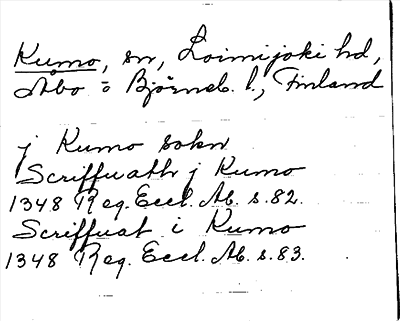 Kumo, sn, Loimijoki hd,
Åbo o Björneb. l., Finland
j Kumo sokn
Scriffuath j Kumo
1348 Reg. Eccl. Ab. s. 82.
Scriffuat i Kumo
1348 Reg. Eccl. Ab. s. 83.